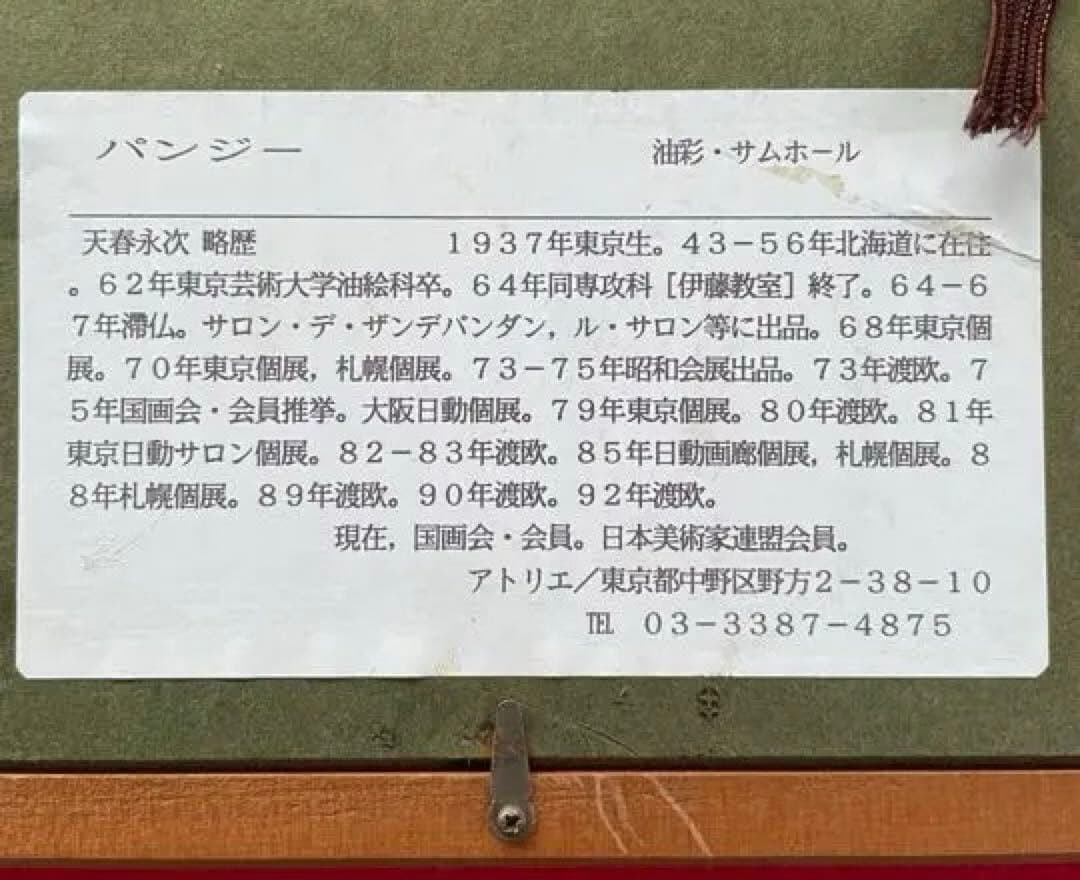 パンジー 油彩・サムホール
天春永次 略歴 1937年東京生。43−56年北海道に在住
。62年東京芸術大学油絵科卒。64年同専攻科［伊藤教室］終了。64−6
7年滞仏。サロン・デ・ザンデパンダン，ル・サロン等に出品。68年東京個
展。70年東京個展，札幌個展。73−75年昭和会展出品。73年渡欧。7
5年国画会・会員推挙。大阪日動個展。79年東京個展。80年渡欧。81年
東京日動サロン個展。82−83年渡欧。85年日動画廊個展，札幌個展。8
8年札幌個展。89年渡欧。90年渡欧。92年渡欧。
現在，国画会・会員。日本美術家連盟会員。
アトリエ／東京都中野区野方2−38−10
℡ 03−3387−4875